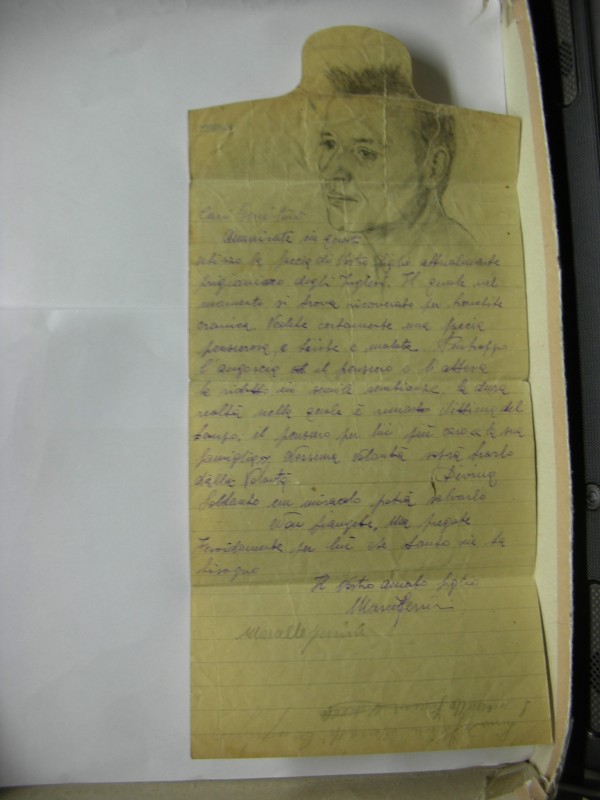 Cari Genitori
Ammirate in questo
schizzo la faccia di Vostro figlio attualmente
prigioniero degli Inglesi. Il quale nel
momento si trova ricoverato per
cronica Vedete certamente una faccia
pensierosa e triste e malata. Purtroppo
l'angoscia ed il pensiero e l'attesa
la ridotto in simili sembianze, la dura
realtà nella quale è rimasto vittima del
tempo, il pensiero per lui più caro a la sua
famiglia, Nessuna volontà
dalla Volontà Divina
Soltanto un miracolo potrà salvarlo
Non piangete, Ma pregate
Fervidamente per lui che tanto ne ha
bisogno
Il Vostro amato figlio
Mario